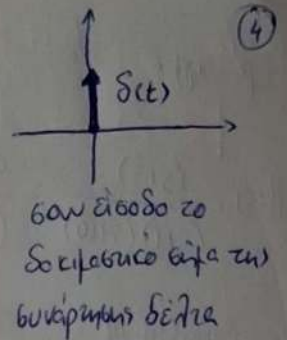 4
δ(t)
σαν είσοδο το
δοκιμαστικό σήμα της
συνάρτησης δέλτα